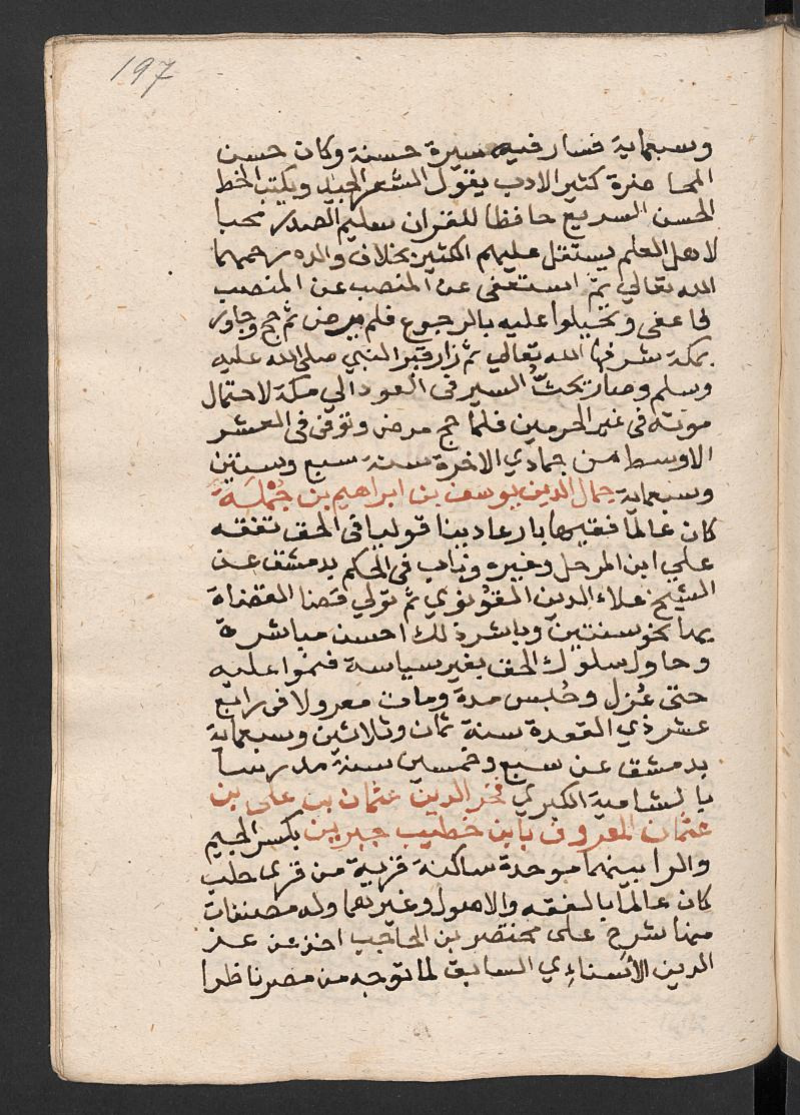 197
وسبعماية فسار فيه سيرة حسنة وكان حسن
المحاضرة كثير الادب يقول الشعر الجيد ويكتب الخط
الحسن السريع حافظا للقران سليم الصدر محبا
لاهل العلم يستقل عليهم الكثير بخلاف والده رحمهما
الله تعالي ثم استعفى عن المنصب عن المنصب
فاعفى وتحيلوا عليه بالرجوع فلم يرض ثم حج وجاور
بمكة شرفها الله تعالي ثم زار قبر النبي صلى الله عليه
وسلم وصار يحثُّ السير فى العود الي مكة لاحتمال
موته فى غير الحرمين فلما حج مرض وتوفى فى العشر
الاوسط من جمادي الاخرة سنة سبع وستين
وسبعماية جمال الدين يوسف بن ابراهيم بن جُمْلَة
كان عالما فقيها بارعا دينا قوليا فى الحق تفقه
علي ابن المرحل وغيره وناب فى الحكم بدمشق عن
الشيخ علاء الدين القُونوي ثم تولي قضا القضاة
بها نحو سنتين وباشر ذلك احسن مباشرة
وحاول سلوك الحق بغير سياسة فنموا عليه
حتى عُزل وحُبس مدة ومات معزولا فى رابع
عشر ذي القعدة سنة ثمان وثلاثين وسبعماية
بدمشق عن سبع وخمسين سنة مدرسا
بالشامية الكبري فخر الدين عثمان بن على بن
عثمان المعروف بابن خطيب جبرين بكسر الجيم
والرا بينهما موحدة ساكنة قرية من قرى حلب
كان عالما بالفقه والاصول وغيرهما وله مصنفات
منها شرح على مختصر بن الحاجب اخذ عن عز
الدين الأسناءي السابق لما توجه من مصر ناظرا